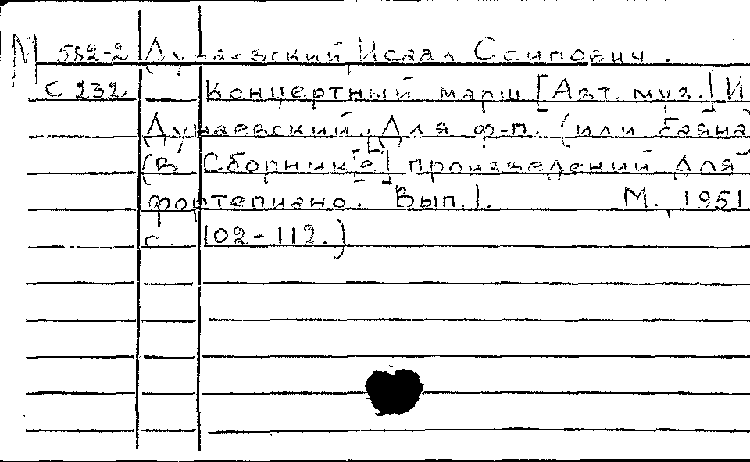 М 582-2 Дунаевский, Исаак Осипович.
С 232 Концертный марш [Авт. муз.] И
Дунаевский. Для ф-п. (или баяна)
(В Сборник[е] произведений для
фортепиано. Вып. 1. М., 1951
с. 102-112.)